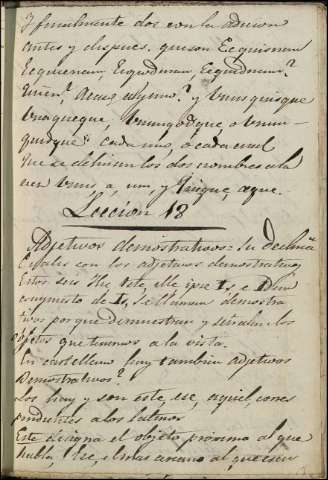 Y finalmente dos con la adicion
antes y despues. que son Ecquisnam
Ecquenam, Ecquodnam, Ecquidnam?
? Acaso alguno? y Unusquisque
Unaqueque, Unumqodque o Unum-
quidque: cada uno, o cada cual
que se declinan los dos nombres a la
vez Unus, a, um, y Quisque, eque.
Leccion 18
Adjetivos demostrativos = Su declina
Cuales son los adjetivos demostrativos
Estos seis Hic, Iste, ille, ipse, Is, e Idem
compuesto de Is, Se llaman demostra
tivos porque demuestran y señalan los
objetos que tenemos a la vista.
En castellano hay tambien adjetivos
Demostrativos?
Los hay y son este, ese, aquel, corres
pondientes a los latinos
Este designa el objeto proximo al que
habla, Ese, el mas cercano al que escu